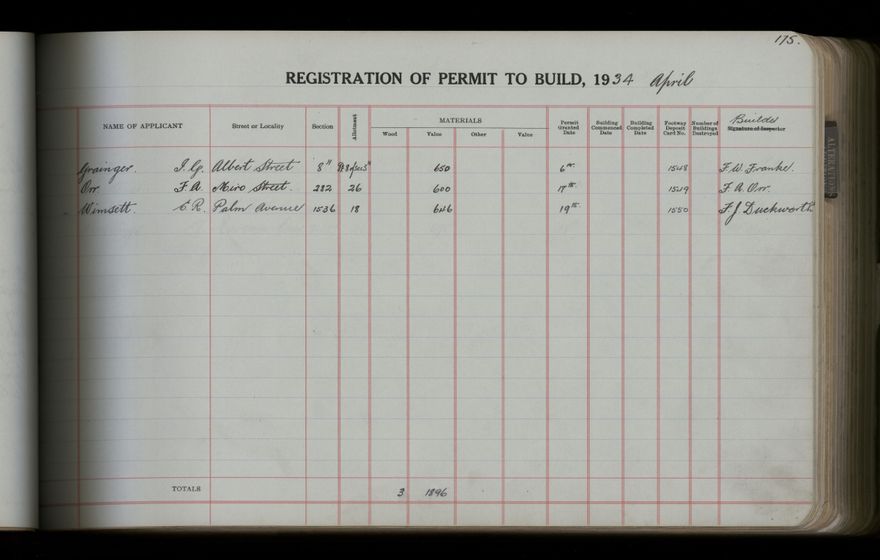 175.
REGISTRATION OF PERMIT TO BUILD, 1934 April
NAME OF APPLICANT Street or Locality Section Allotment MATERIALS Wood Value Other Value Permit Granted Date Building Commenced Date Building Completed Date Footway Deposit Card No. Number of Buildings Destroyed Builder Signature of Inspector
Grainger. J. G. Albert Street 8 650 6th 1548 F. W. Franke.
Orr F. A. Miro Street. 282 26 600 17th 1549 F A Orr.
Wimsett C. R. Palm Avenue 1536 18 646 19th 1550 F. J. Duckworth
TOTALS 3 1896